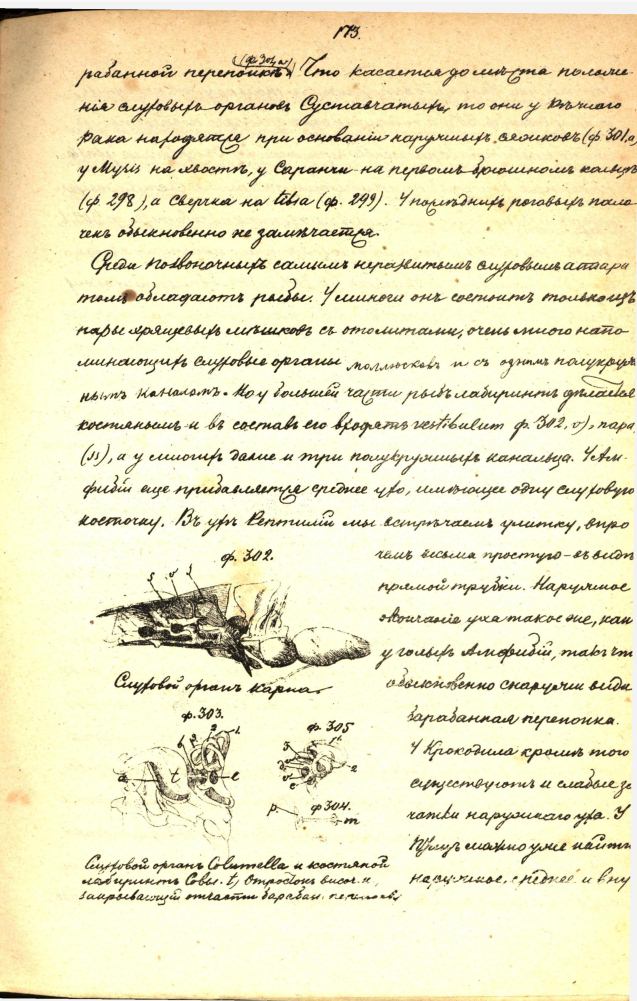 173.
(ф 301,а)
рабанной перепонкѣ. Что касается до мѣста положе-
нія слуховыхъ органовъ Суставчатыхъ, то они у Рѣчного
Рака находятся при основаніи наружныхъ усиковъ (ф 301,а)
у Mysis на хвостѣ, у Саранчи на первомъ брюшномъ кольцѣ
(ф 298), а Сверчка на tibia (ф. 299). У послѣднихъ роговыхъ пало-
чекъ обыкновенно не замѣчается.
Среди позвоночныхъ самымъ неразвитымъ слуховымъ аппара
томъ обладаютъ рыбы. У миноги онъ состоитъ только изъ
пары хрящевыхъ мѣшковъ съ отолитами, очень много напо-
минающихъ слуховые органы моллюсковъ и съ однимъ полукруж
нымъ каналомъ. Но у большей части рыбъ лабиринтъ дѣлается
костянымъ и въ составъ его входятъ vestibulum ф. 302, v), пара
(ss), а у многихъ даже и три полукружныхъ канальца. У Ам-
фибій еще прибавляется среднее ухо, имѣющее одну слуховую
косточку. Въ ухѣ Рептилій мы встрѣчаемъ улитку, впро
чемъ весьма простую - въ видѣ
прямой трубки. Наружное
окончаніе уха такое же, как
у голыхъ Амфибій, такъ чт
обыкновенно снаружи видн
барабанная перепонка.
У Крокодила кромѣ того
существуютъ и слабые за
чатки наружнаго уха. У
Птицъ можно уже найти
наружное, среднее и вну
ф. 302.
s v s
Слуховой органъ карпа.
ф. 303.
t
ф. 305
ф 304.
p. m
Слуховой органъ Columella и костяной
лабиринтъ Совы. t, Отростокъ височ. к,
закрывающій отчасти барабан. перепонку